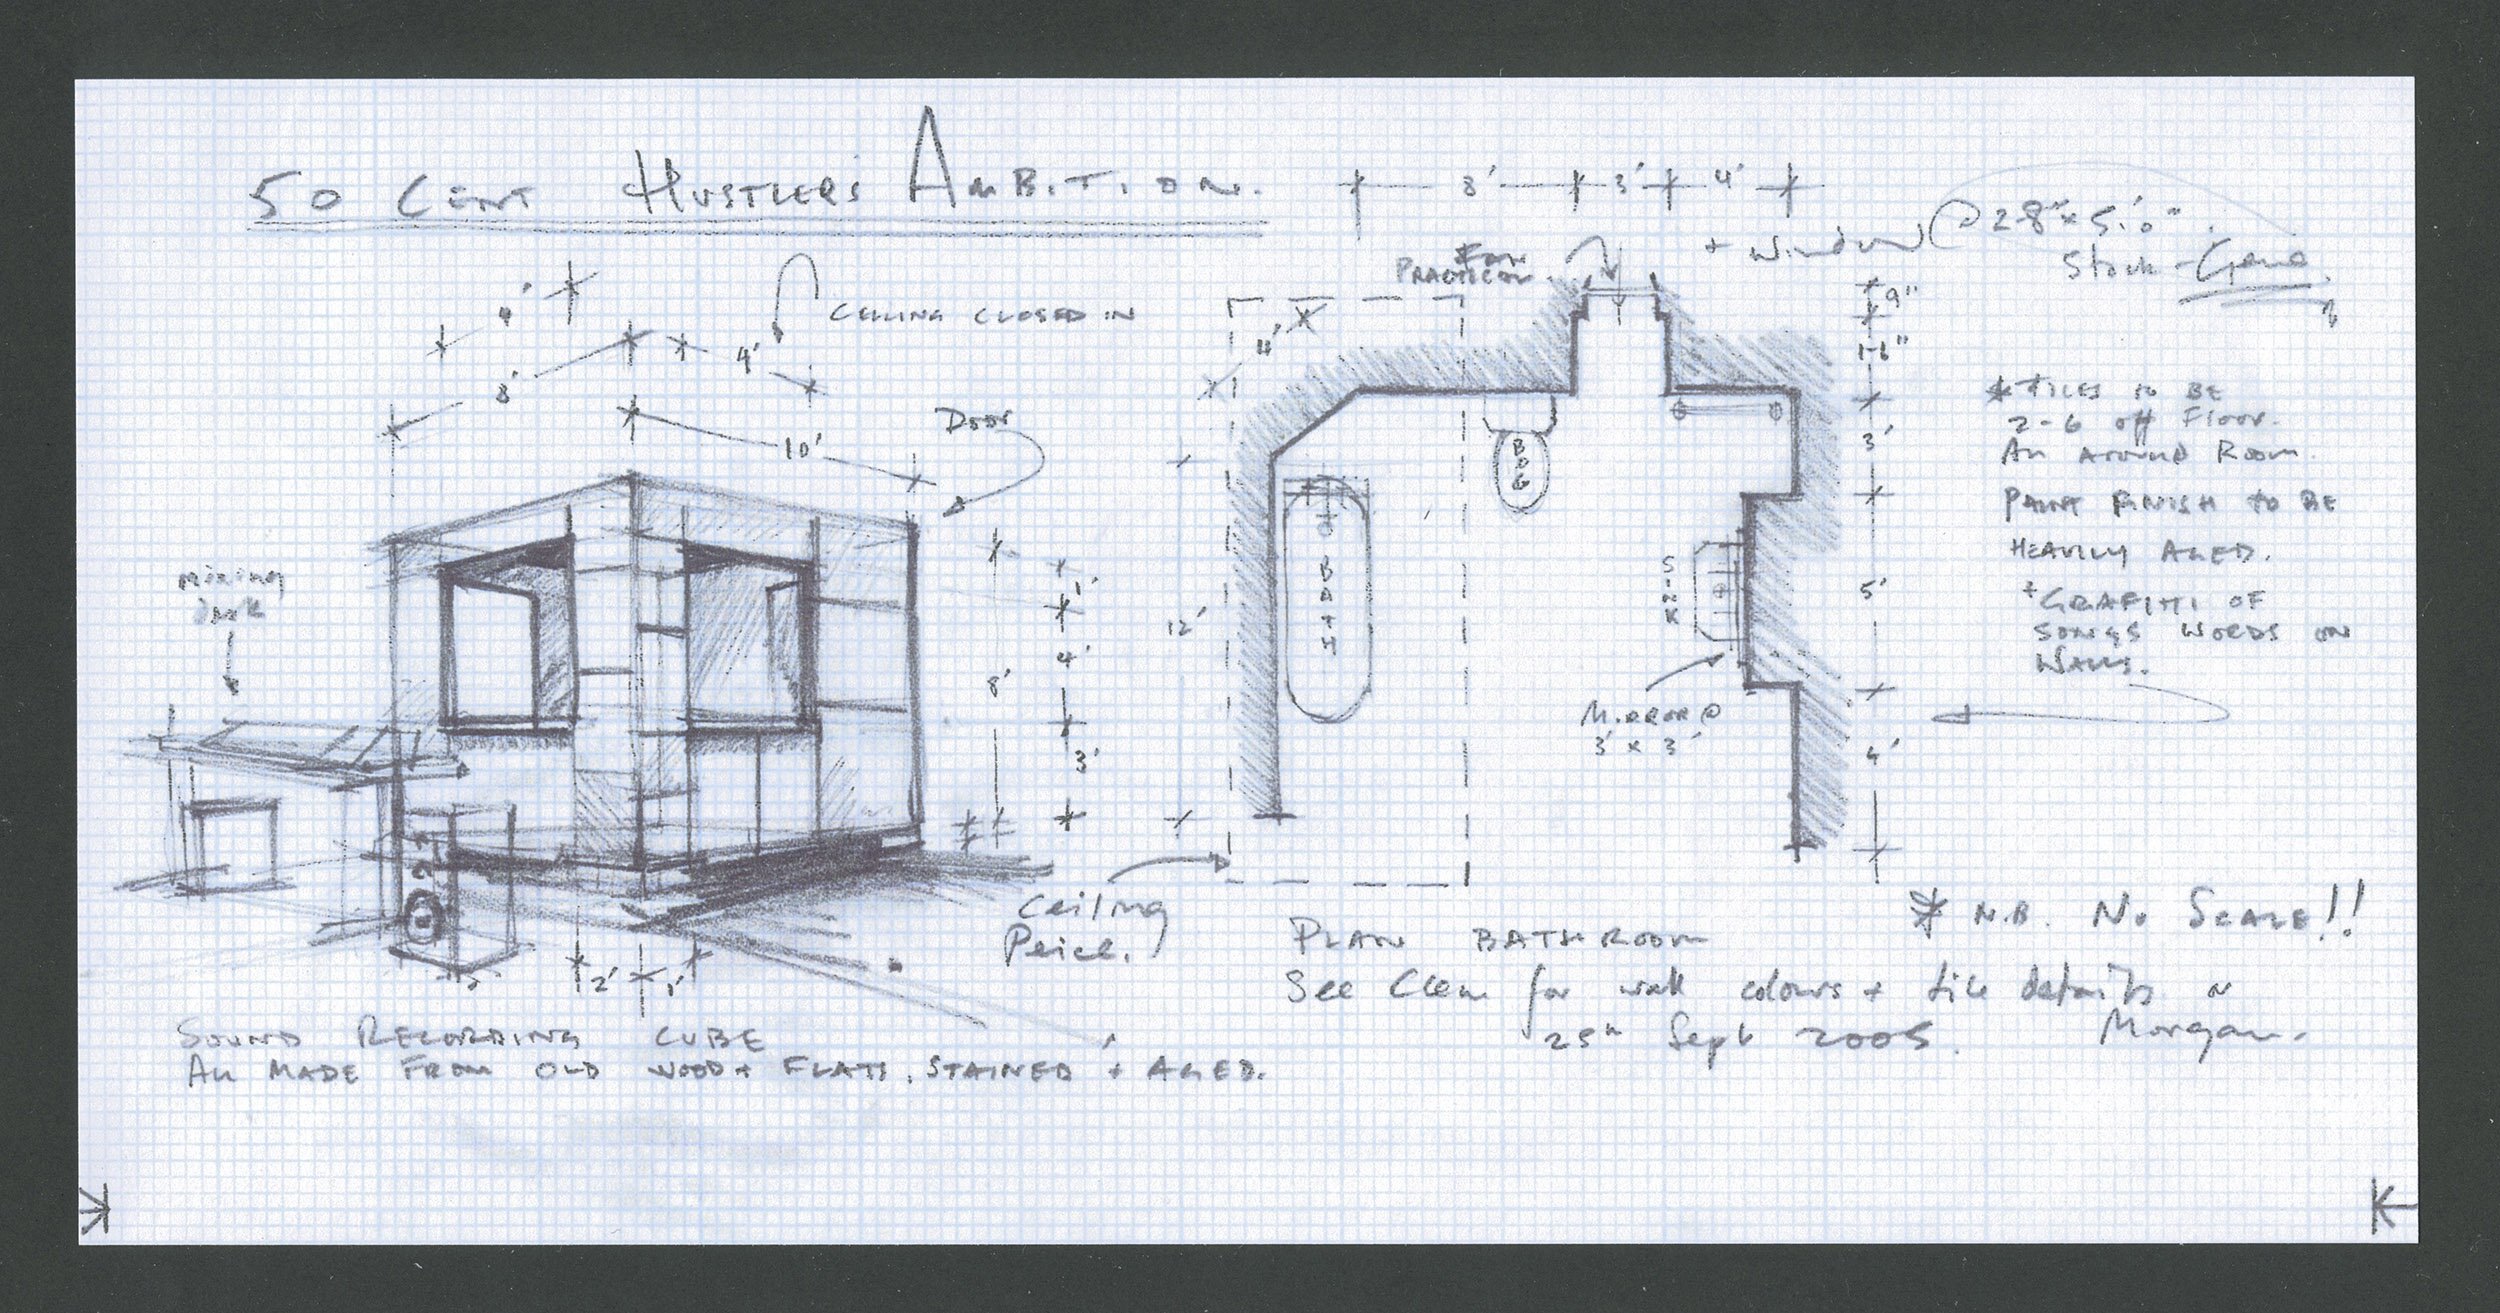 50 CENT HUSTLERS AMBITION.
8' 3' 4'
+ Window @ 2-8" x 5'.0"
Stock - Gene
FAN
PRACTICAL
CEILING CLOSED IN
4'
8'
4'
10'
Door
Mixing
Desk
8'
1'
4'
3'
2' 1'
4'
12'
BOG
BATH
SINK
MIRROR @
3' x 3'
9"
1-6"
3'
5'
4'
* TILES TO BE
2-6 off Floor.
ALL AROUND ROOM.
PAINT FINISH TO BE
HEAVILY AGED.
+ GRAFITTI OF
SONGS WORDS ON
WALLS.
Ceiling
Peice.
* N.B. No SCALE!!
PLAN BATHROOM
See Clem for wall colours + tile details
25th Sept 2005. Morgan.
SOUND RECORDING CUBE
ALL MADE FROM OLD WOOD + FLATS, STAINED + AGED.